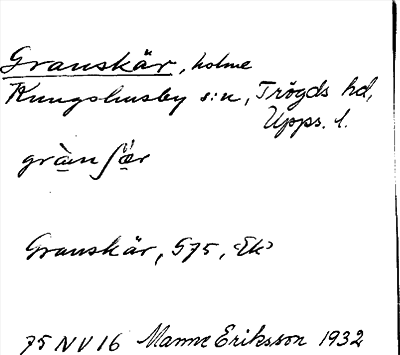 Granskär, holme
Kungshusby s:n, Trögds hd,
Upps. l.
gràn ʃä́r
Granskär, S75, Ek
75 NV 16 Manne Eriksson 1932